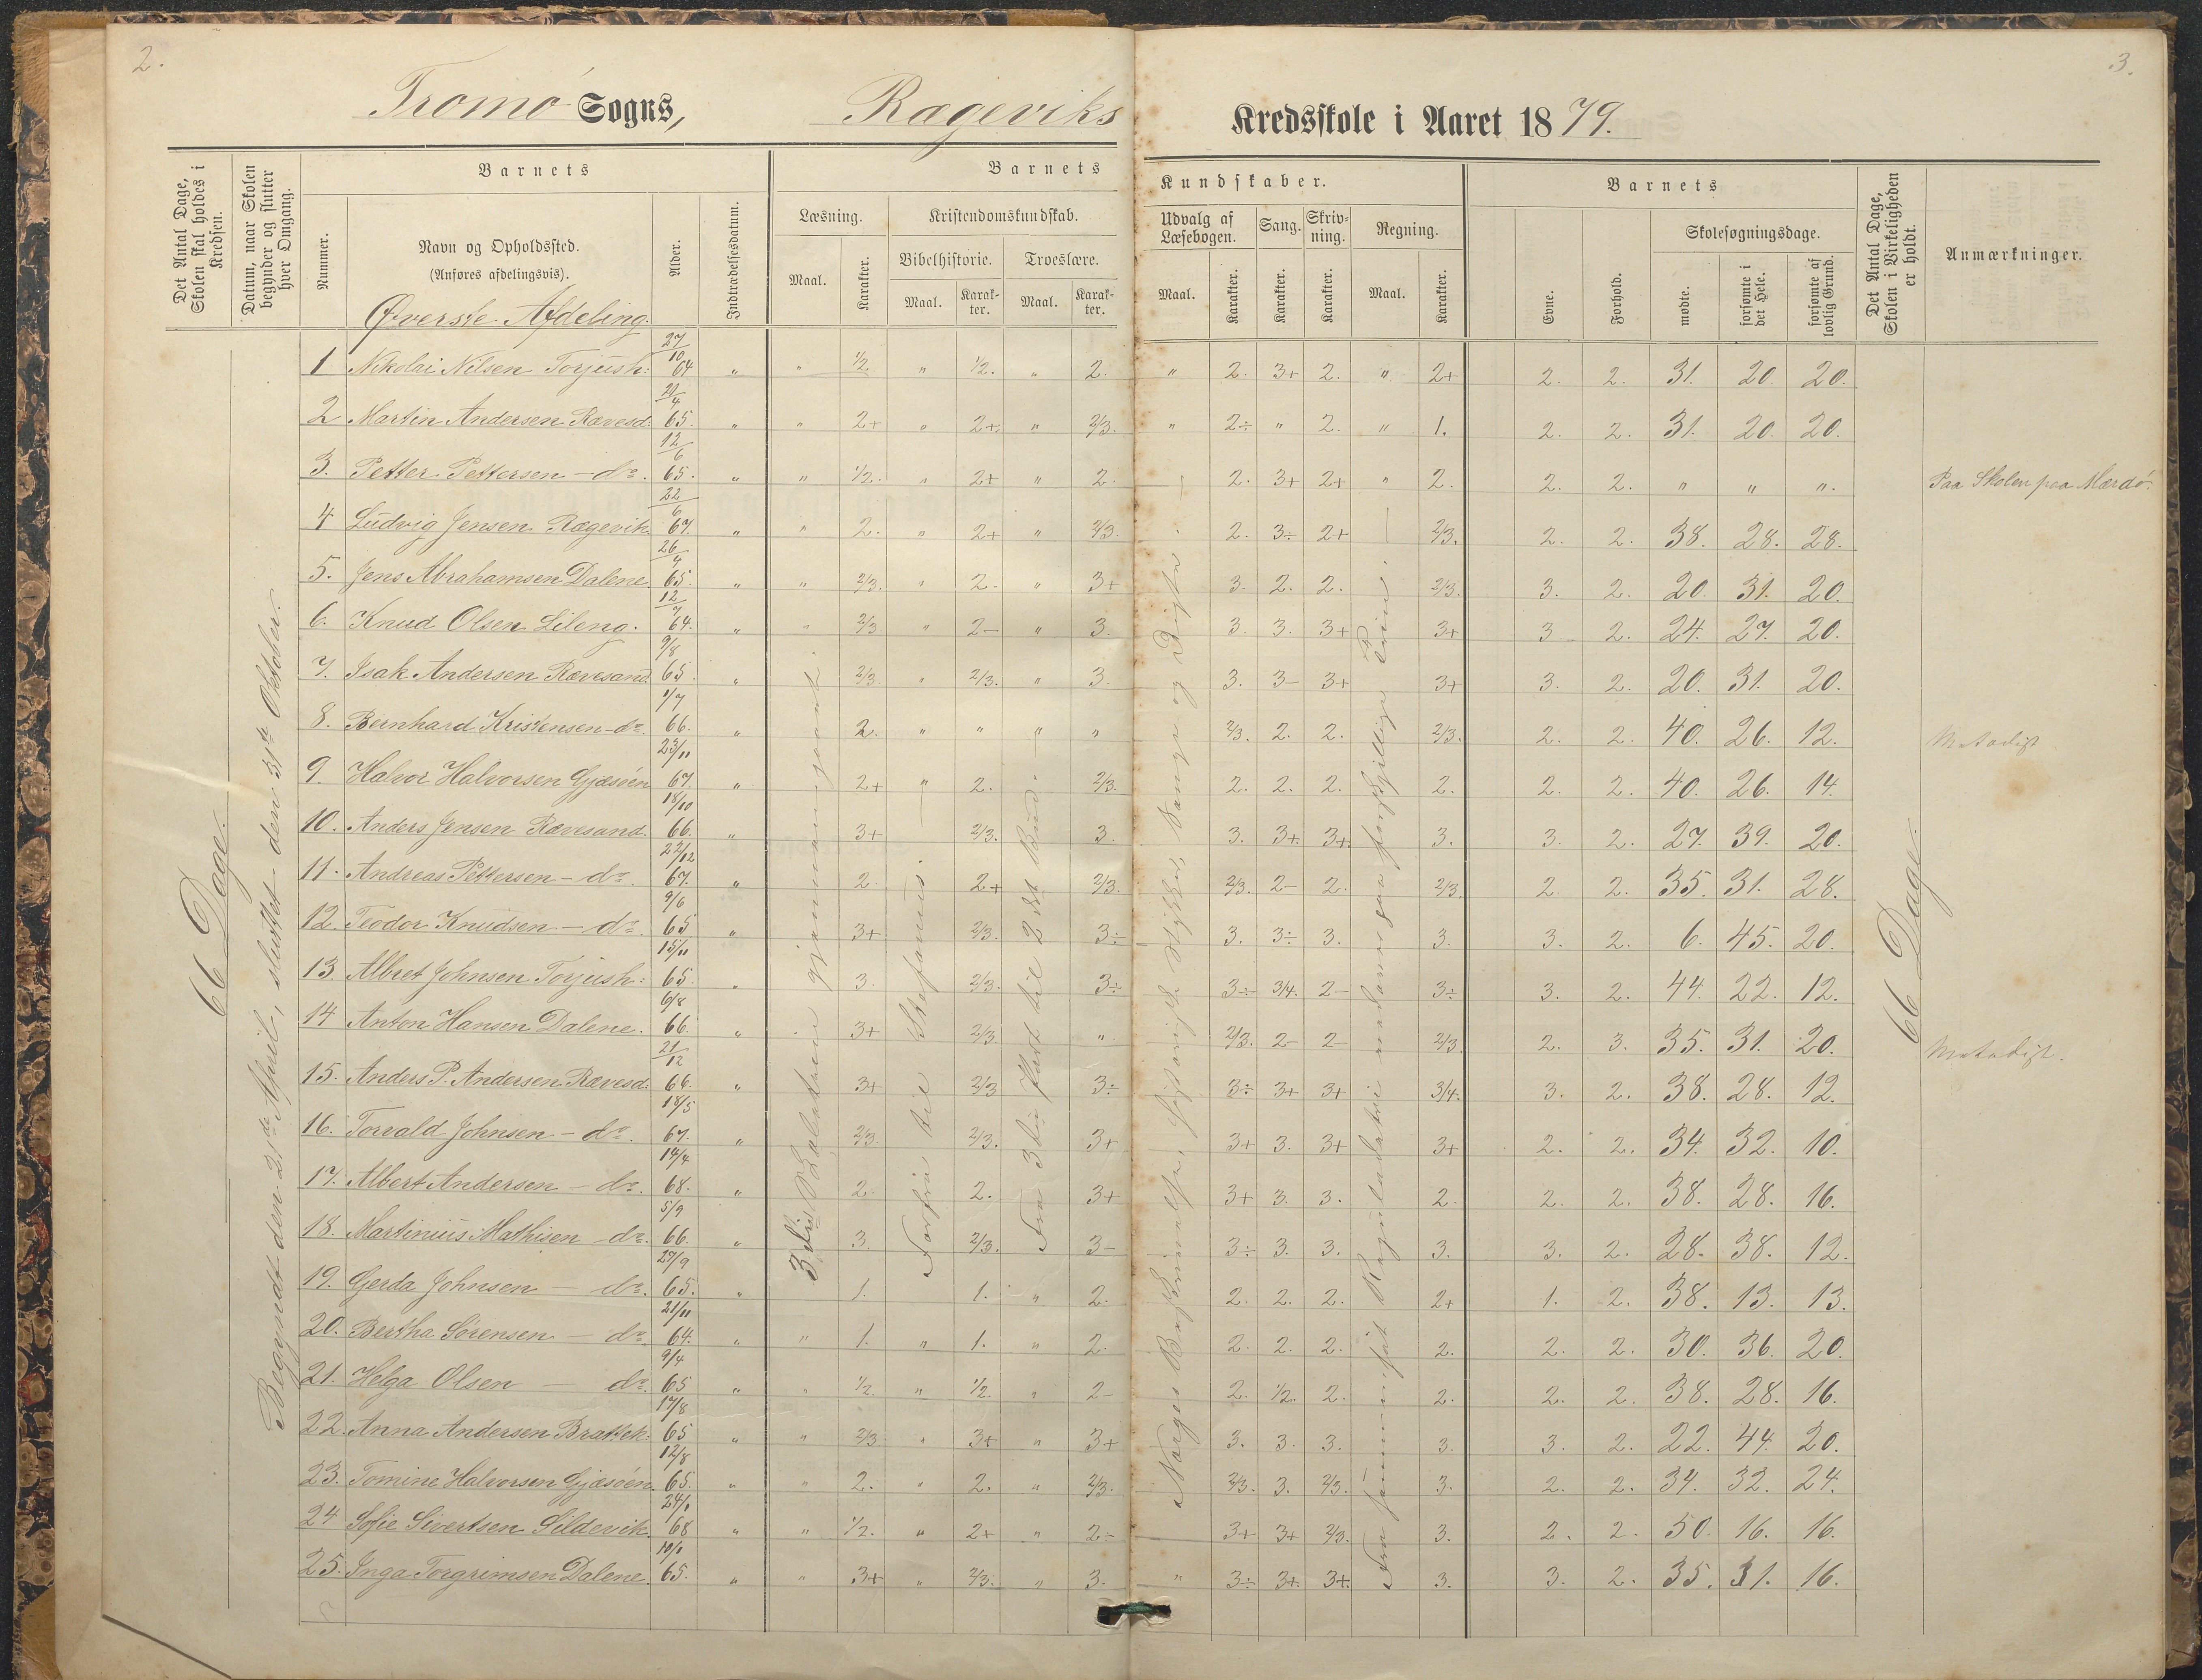 2.
3.
Tromø Sogns, Rægeviks Kredsskole i Aaret 1879.
Det Antal Dage, Skolen skal holdes i Kredsen.
Datum, naar Skolen begynder og slutter hver Omgang.
Barnets
Nummer.
Navn og Opholdssted.
(Anføres afdelingsvis).
Alder.
Indtrædelsesdatum.
Barnets Kundskaber.
Læsning.
Maal. Karakter.
Kristendomskundskab.
Bibelhistorie. Troeslære.
Maal. Karakter. Maal. Karakter.
Udvalg af Læsebogen.
Maal. Karakter.
Sang.
Karakter.
Skrivning.
Karakter.
Regning.
Maal. Karakter.
Barnets
Evne. Forhold.
Skolesøgningsdage.
mødte. forsømte i det Hele. forsømte af lovlig Grund.
Det Antal Dage, Skolen i Virkeligheden er holdt.
Anmærkninger.
Øverste Afdeling.
66 Dage.
Begyndt den 21de April, sluttet den 31te Oktober.
1 Nikolai Nilsen Torjush: 27/10 64 " " 1/2 " 1/2. " 2. " 2. 3+ 2. " 2+ 2. 2. 31. 20. 20.
2 Martin Andersen Rævesd: 20/4 65. " " 2+ " 2+ " 2/3. " 2÷ " 2. " 1. 2. 2. 31. 20. 20.
3. Petter Pettersen - do. 12/6 65. " " 1/2. " 2+ " 2. 2. 3+ 2+ " 2. 2. 2. " " " Paa Skolen paa Mærdø.
4 Ludvig Jensen Rægevik 22/6 67. " " 2. " 2+ " 2/3. 2. 3÷ 2+ 2/3. 2. 2. 38. 28. 28.
5. Jens Abrahamsen Dalene. 26/4 65. " " 2/3. " 2- " 3+ 3. 2. 2. 2/3. 3. 2. 20. 31. 20.
6. Knud Olsen Lileng. 12/7 64. " " 2/3 " 2- " 3. 3. 3. 3+ 3+ 3 2. 24. 27. 20.
7. Isak Andersen Rævesand. 9/8 65. " 2/3. " 2/3. " 3. 3. 3- 3+ 3+ 3. 2. 20. 31. 20.
8. Bernhard Kristensen - do. 1/7 66. " 2. " " " " 2/3. 2. 2. 2/3. 2. 2. 40. 26. 12.
9. Halvor Halvorsen Gjæsøen 23/11 67. " 2+ " 2. " 2/3. 2. 2. 2. 2. 2. 2. 40. 26. 14.
10. Anders Jensen Rævesand. 18/10 66. " 3+ 2/3. 3 3. 3+ 3+ 3. 3. 2. 27. 39. 20.
11. Andreas Pettersen - do. 22/12 67. " 2. 2+ 2/3. 2/3. 2- 2. 2/3. 2. 2. 35. 31. 28.
12. Teodor Knudsen - do. 9/6 65 " 3+ 2/3. 3÷ 3. 3÷ 3. 3. 3. 2. 6. 45. 20.
13. Albret Johnsen Torjush: 15/11 65. " 3. 2/3. 3÷ 3÷ 3/4. 2- 3÷ 3. 2. 44. 22. 12.
14 Anton Hansen Dalene. 6/8 66. " 3+ 2/3. " 2/3. 2- 2- 2/3. 2. 3. 35. 31. 20.
15. Anders P. Andersen Rævesd: 21/12 66. " 3+ 2/3 3÷ 3÷ 3+ 3+ 3/4. 3. 2. 38. 28. 12.
16. Torvald Johnsen - do. 18/5 67. " 2/3. 2/3. 3+ 3+ 3. 3+ 3+ 2. 2. 34. 32. 10.
17. Albert Andersen - do. 14/4 68. " 2. 2. 3+ 3+ 3. 3. 2. 2. 2. 38. 28. 16.
18. Martinius Mathisen do. 5/9 66. " 3. 2/3. 3- 3÷ 3. 3. 3. 3. 2. 28. 38. 12.
19. Gerda Johnsen - do. 27/9 65. " 1. 1. " 2. 2. 2. 2. 2+ 1. 2. 38. 13. 13.
20. Bertha Sørensen - do 21/11 64. " " 1. " 1. " 2. 2. 2. 2. 2. 2. 2. 30. 36. 20.
21. Helga Olsen do. 9/4 65 " " 1/2. " 1/2. " 2- 2. 1/2. 2. 2. 2. 2. 38. 28. 16.
22. Anna Andersen Brattek: 17/8 65 " " 2/3 " 3+ " 3+ 3. 3. 3. 3. 3. 2. 22. 44. 20.
23. Tomine Halvorsen Gjæsøen. 12/8 65. " " 2. " 2. " 2/3. 2/3. 3. 2/3. 3. 2. 2. 34. 32. 24.
24 Sofie Sivertsen Sildevik. 68 " " 1/2. " 2+ " 2÷ 3+ 3+ 2/3. 3. 2. 2. 50. 16. 16.
25. Inga Torgrimsen Dalene. 65. " " 3+ " 2/3. " 3. " 3÷ 3+ 3+ 3. 3. 2. 35. 31. 16.
Forfra til Stefanus.
Fra 3die Part til 2det Bud
66 Dage.